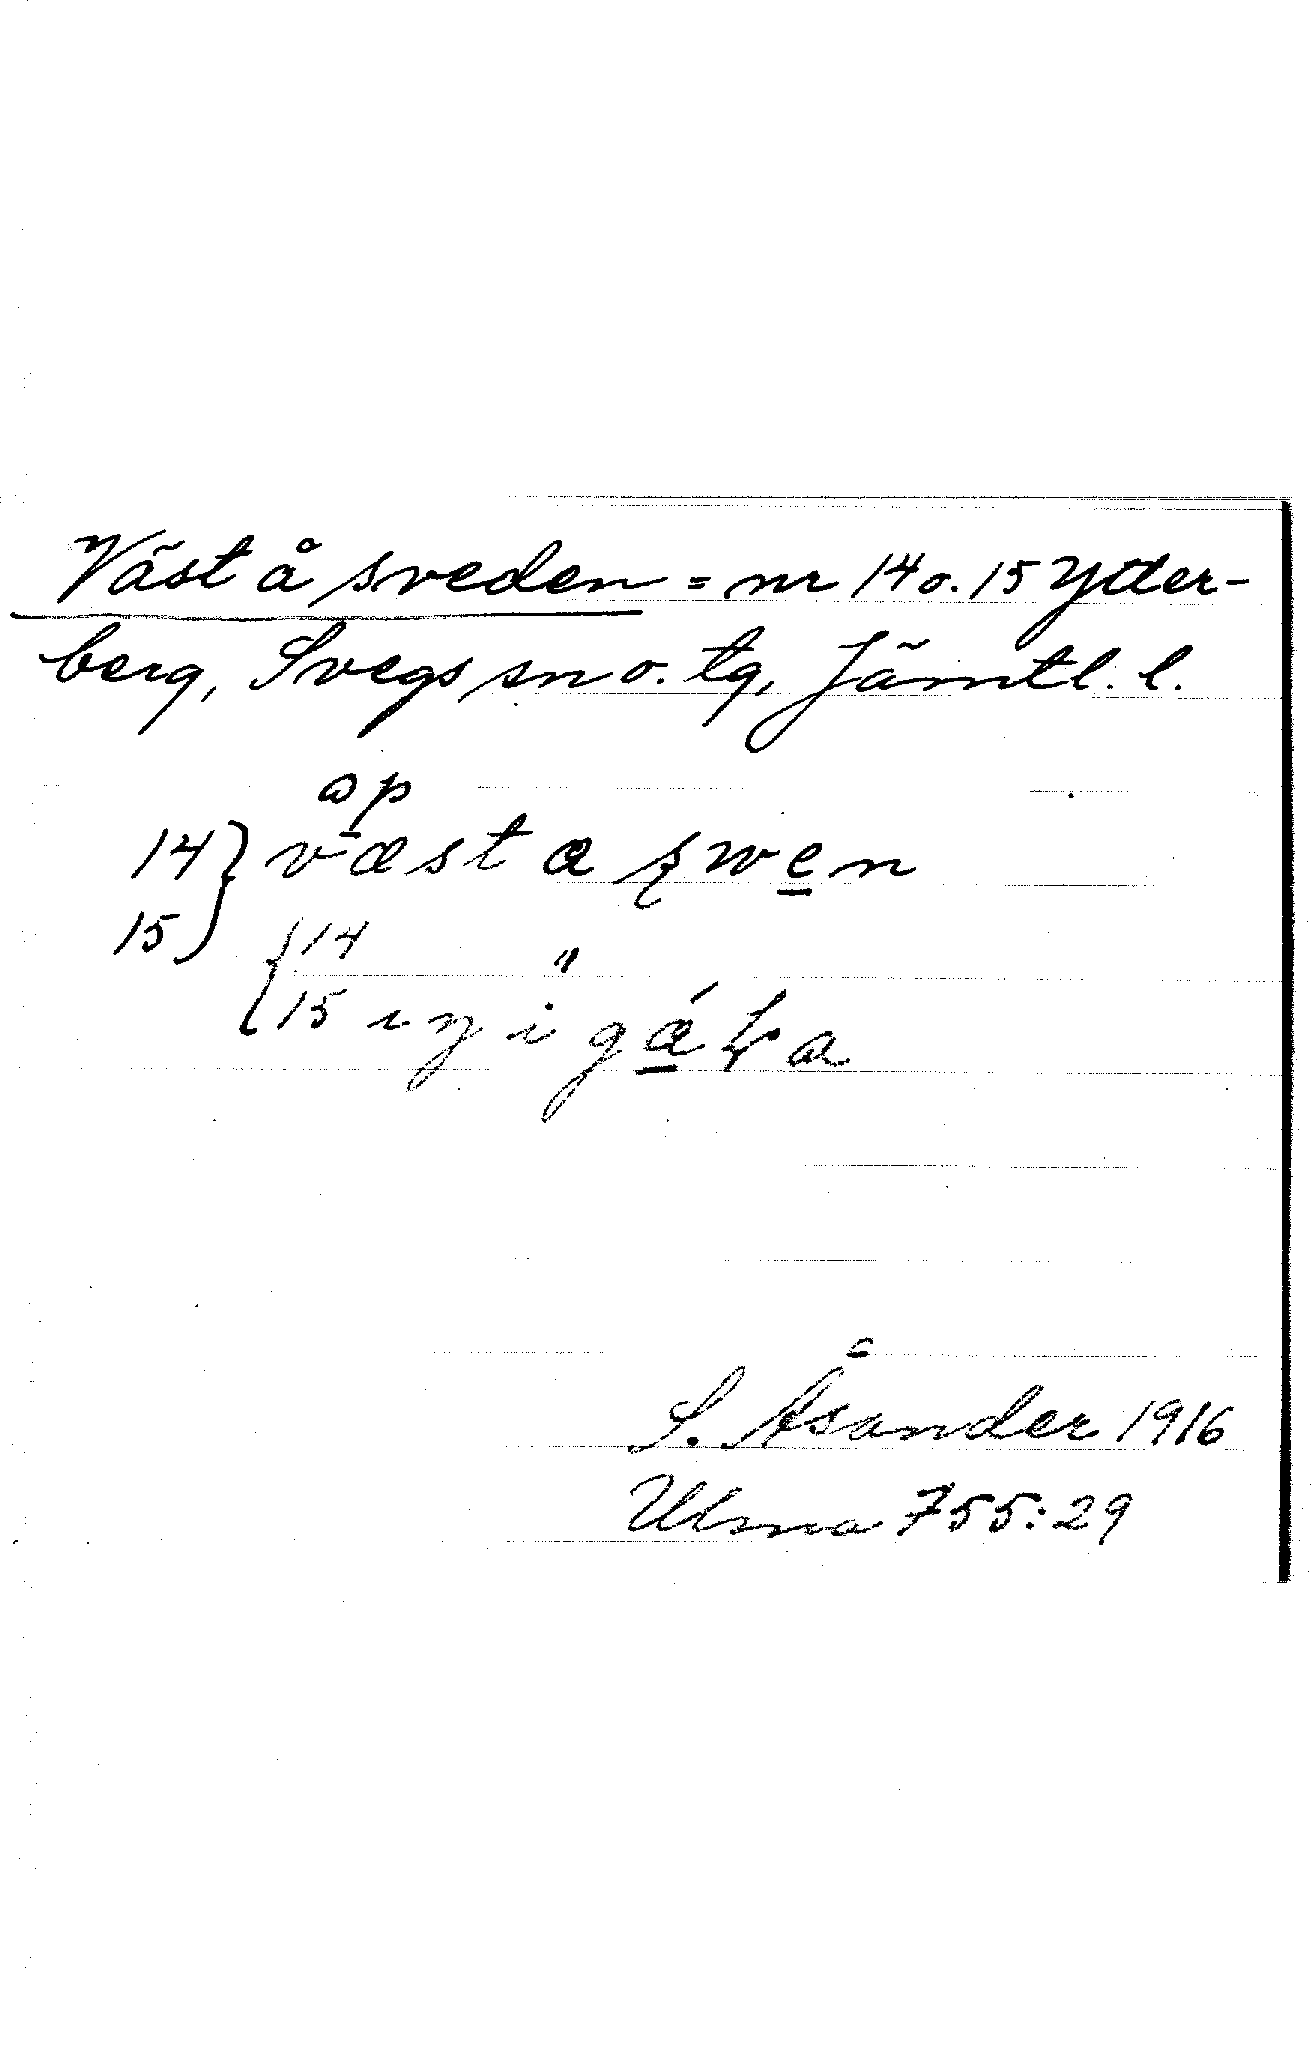 Väst å sveden = nr 14 o. 15 Ytter-
berg, Svegs sn o. tg, Jämtl. l.
op
14 } væst a swen
15
{ 14 "
15 ı ŋ i gǽƚa
S. Åsander 1916
Ulma 755:29